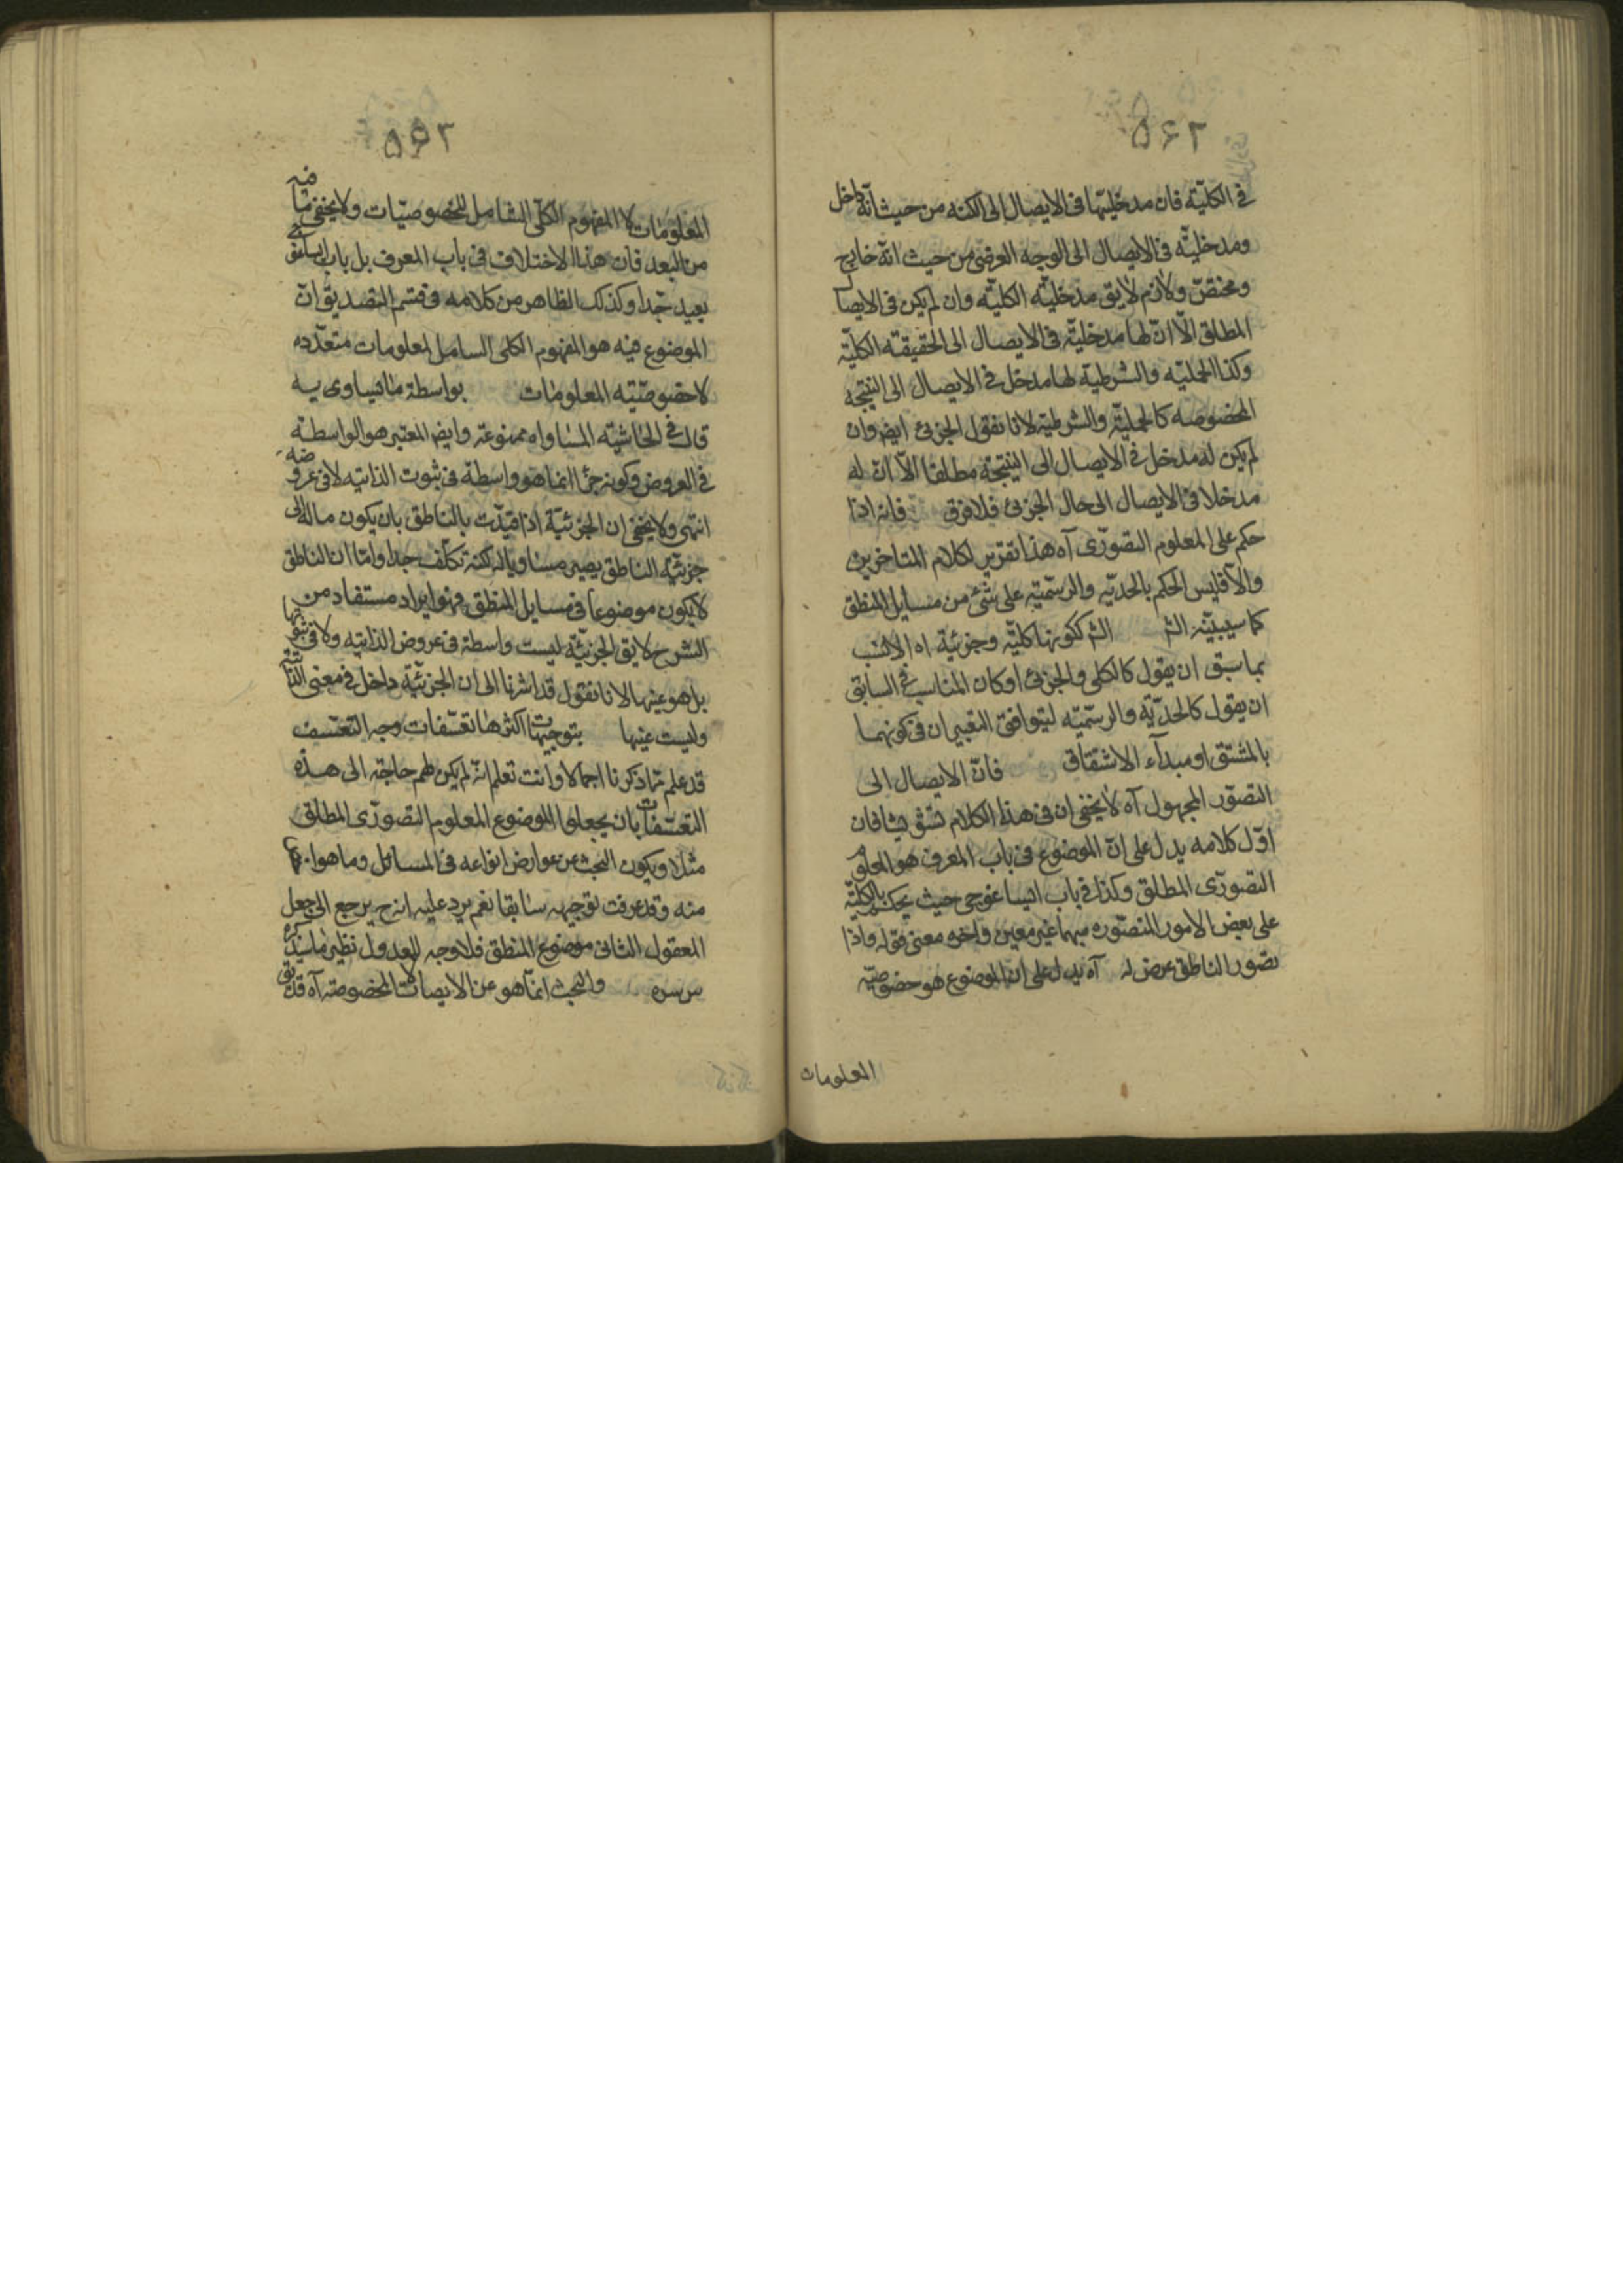 ٥٦٢
في الكلّية فان مدخليّتها في الايصال الى الكنه من حيث انّه داخل
ومدخليّته في الايصال الى الوجه العرضي من حيث انّه خارج
ومختصّ ولازم لا يق مدخليّة الكليّة وان لم يكن في الايصال
المطلق الّا انّ لها مدخليّة في الايصال الى الحقيقة الكليّة
وكذا الحمليّة والشرطية لها مدخل في الايصال الى النتيجة
المخصوصة كالحمليّة والشرطية لانا نقول الجزئى ايض وان
لم يكن له مدخل في الايصال الى النتيجة مطلقا الّا انّ له
مدخلا في الايصال الى حال الجزئى فلا فرق فانه اذا
حكم على المعلوم التصوّرى آه هذا تقرير لكلام المتاخرين
والّا فليس الحكم بالحدّيّه والرسميّة على شئ من مسايل المنطق
كما سيبيّنه الشر الشر ككونها كليّة وجزئيّة اه الانسب
بما سبق ان يقول كالكلى والجزئى او كان المناسب في السابق
ان يقول كالحدّيّة والرسميّه ليتوافق التعبيران في كونهما
بالمشتق او مبدأء الاشتقاق فانّ الايصال الى
التصوّر المجهول آه لا يخفى ان في هذا الكلام تشويشا فان
اوّل كلامه يدل على انّ الموضوع في باب المعرف هو المعلوم
التصوّرى المطلق وكذا في باب ايساغوجى حيث يحكم بالكليّة
على بعض الامور المتصوّره مبهما غير معين واخره معنى قوله واذا
تصور الناطق عرض له آه يدل على ان الموضوع هو خصوصيّة
المعلومات
٥٦٣
المعلومات لا المفهوم الكلّى الشامل للخصوصيّات ولا يخفى ما فيه
من البعد فان هذا الاختلاف في باب المعرف بل باب ايساغوجى
بعيد جّدا وكذلك الظاهر من كلامه في قسم التصديق انّ
الموضوع فيه هو المفهوم الكلى الشامل لمعلومات متعدّده
لا خصوصيّته المعلومات بواسطة ما يساويه
قال في الحاشية المساواه ممنوعة وايض المعتبر هو الواسطة
في العروض وكونه جزأ انما هو واسطة في ثبوت الذاتيه لا في عروضه
انتهى ولا يخفى ان الجزئيّة اذا قيّدت بالناطق بان يكون ماله الى
جزئيّة الناطق يصير مساويا له لكنه تكلّف جدا وامّا ان الناطق
لا يكون موضوعا في مسايل المنطق فهو ايراد مستفاد من
الشرح لا يق الجزئيّة ليست واسطة في عروض الذاتيه ولا في ثبوتها
بل هو عينها لانا نقول قد اشرنا الى ان الجزئيّة داخل في معنى الذاتيّة
وليست عينها بتوجيهات اكثرها تعسّفات وجه التعسّف
قد علم ممّا ذكرنا اجمالا وانت تعلم انّه لم يكن لهم حاجة الى هذه
التعسّفات بان يجعلوا الموضوع المعلوم التصوّرى المطلق
مثلا ويكون البحث عن عوارض انواعه في المسائل وما هو
منه وقد عرفت توجيهه سابقا نعم يرد عليه انه ح يرجع الى جعل
المعقول الثانى موضوع المنطق فلا وجه للعدول نظير ما سيذكره
والبحث انّما هو عن الايصالات المخصوصة آه قد يق